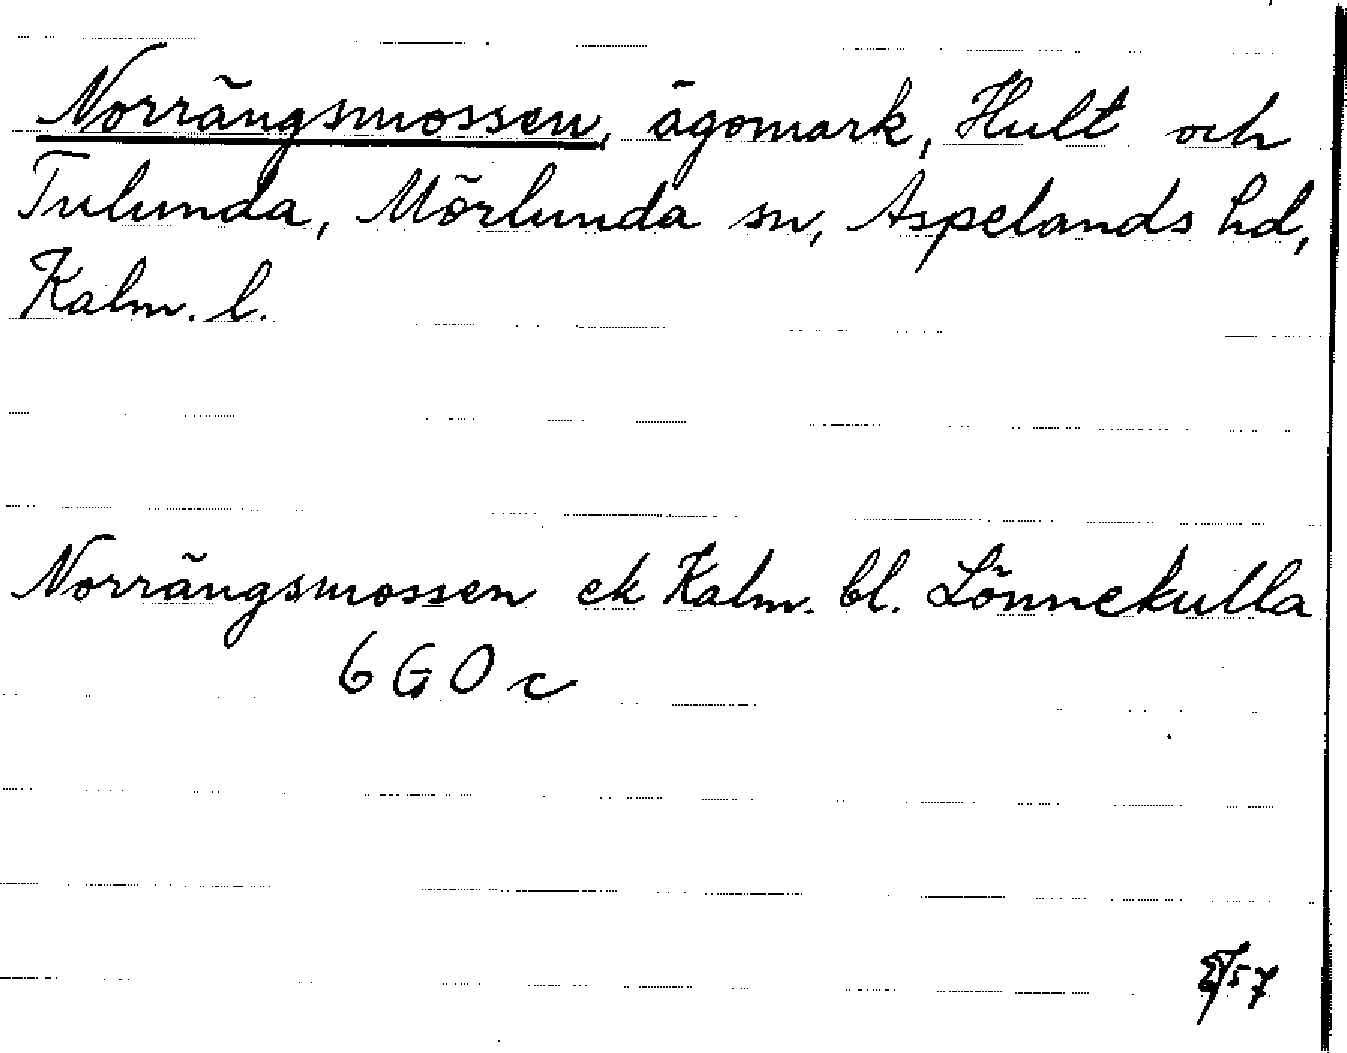 Norrängsmossen, ägomark, Hult och
Tulunda, Mörlunda sn, Aspelands hd,
Kalm. l.
Norrängsmossen ek Kalm. bl. Lönnekulla
6 G O c